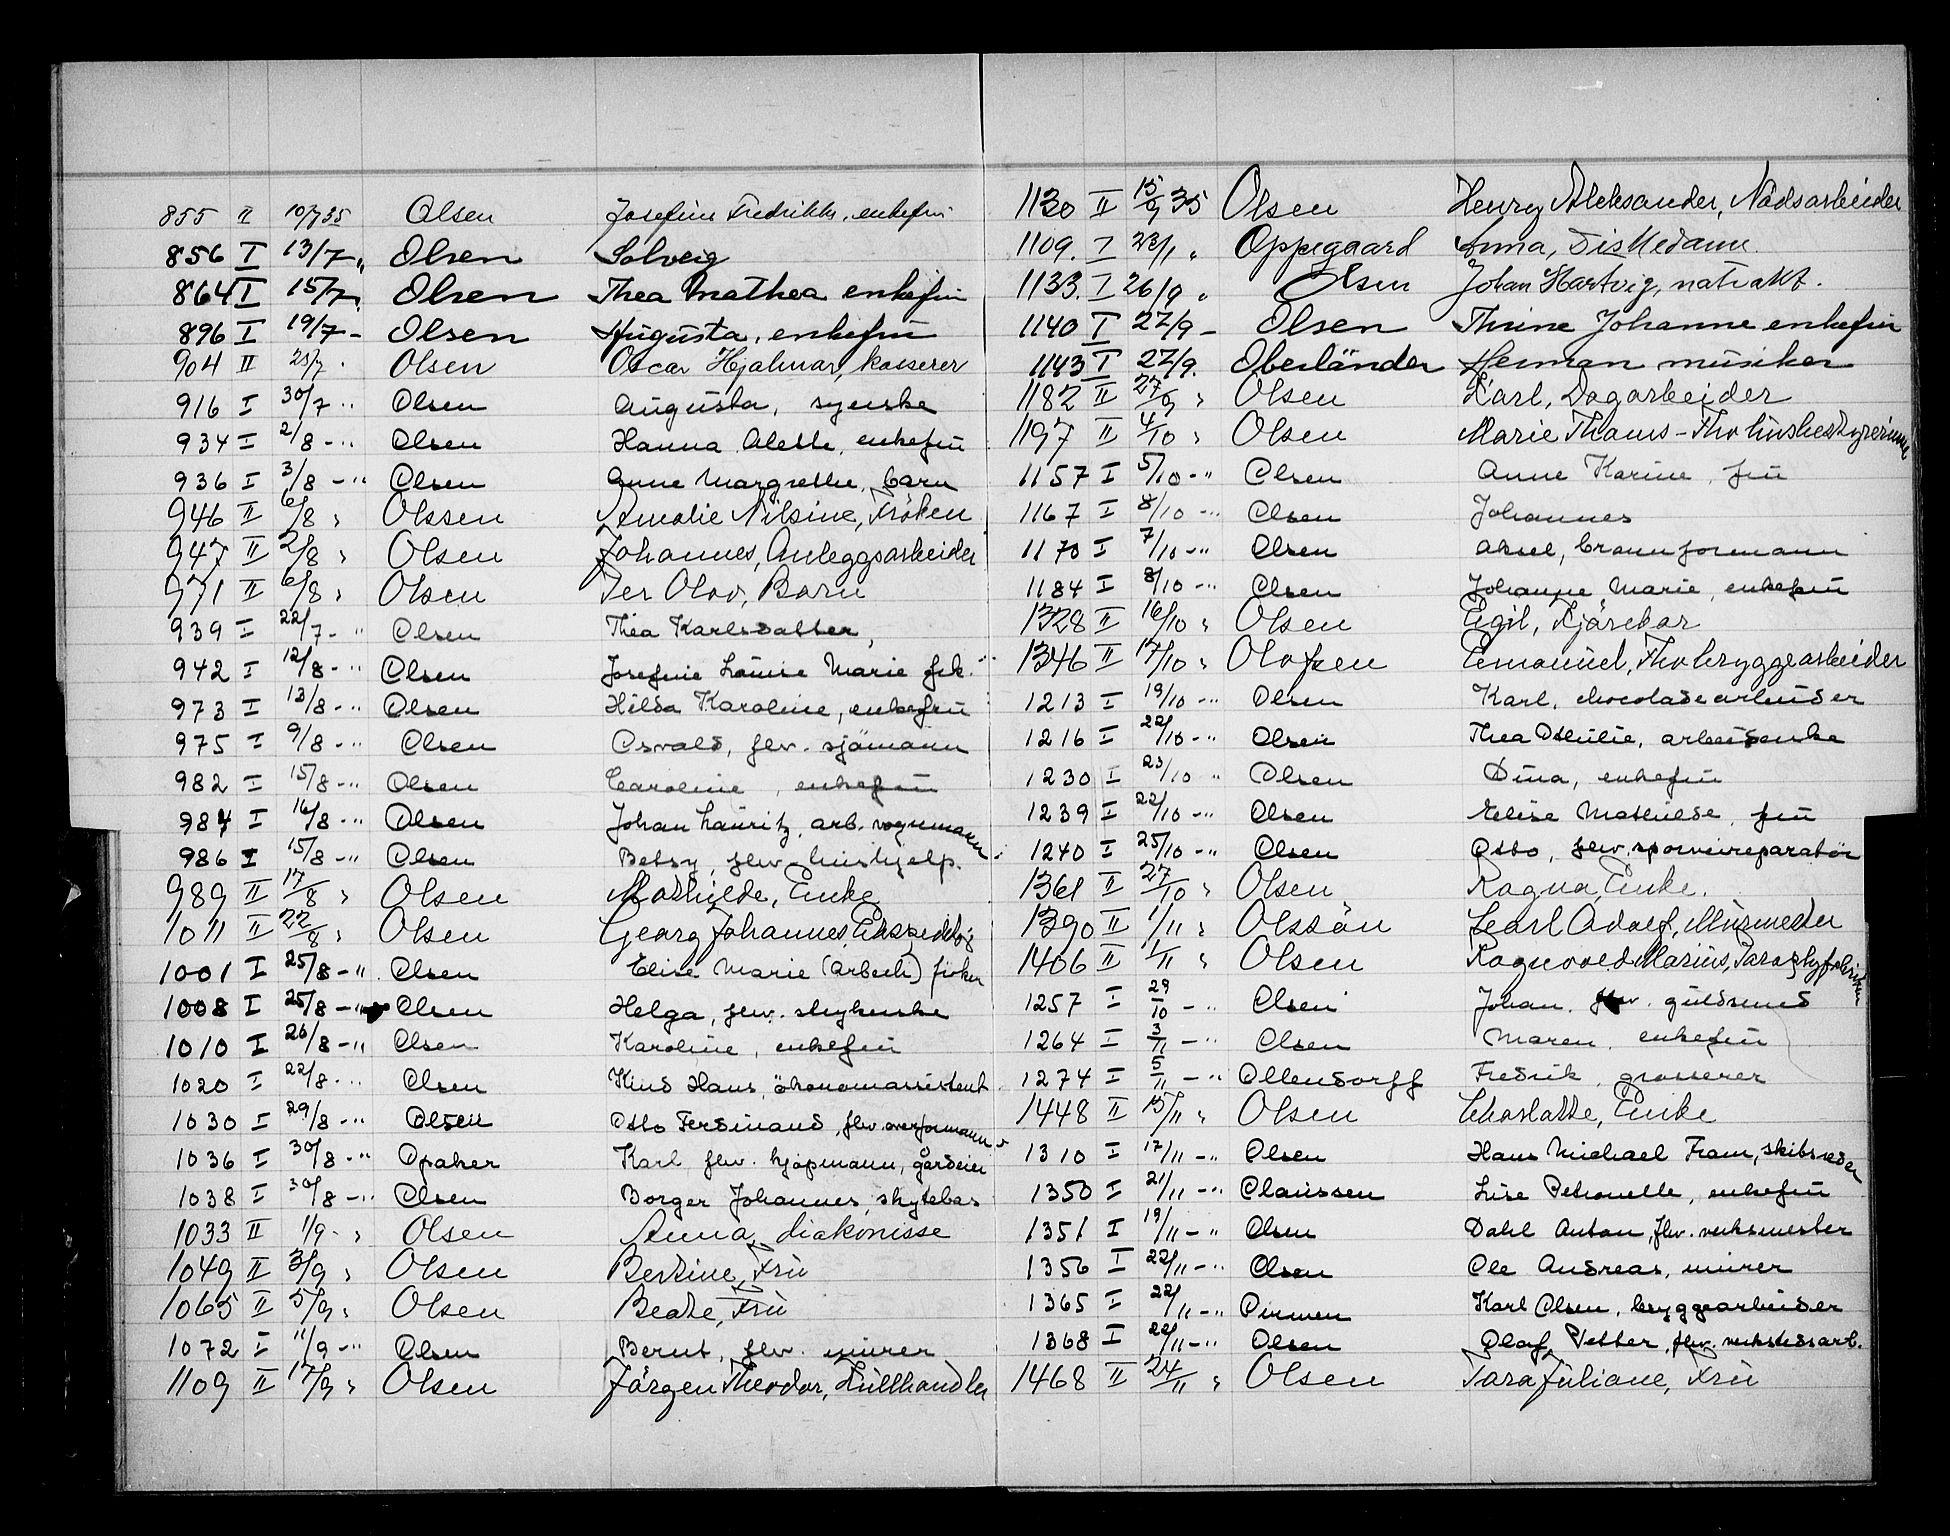 855 II 10/7 35 Olsen Josefine Fredrikke, enkefru
856 I 13/7 „ Olsen Solveig
864 I 15/7 „ Olsen Thea Mathea enkefru
896 I 19/7 - Olsen Augusta, enkefru
904 II 25/7 Olsen Oscar Hjalmar, kasserer
916 I 30/7 -„ Olsen Augusta, syerske
934 I 2/8 -„ Olsen Hanna Alette, enkefru
936 I 3/8 -„ Olsen Anne Margrethe, barn
946 II 6/8 „ Olssen Amalie Nilsine, Fröken
947 II 2/8 „ Olsen Johannes, Anleggsarbeider
971 II 6/8 „ Olsen Per Olav, Barn
939 I 22/7 -„ Olsen Thea Karlsdatter,
942 I 12/8 -„ Olsen Josefine Louise Marie frk.
973 I 13/8 -„ Olsen Hilda Karoline, enkefru
975 I 9/8 -„ Olsen Osvald, fhv. sjömann
982 I 15/8 -„ Olsen Caroline, enkefru
984 I 16/8 -„ Olsen Johan Lauritz, arb. vognmann
986 I 15/8 -„ Olsen Betsy, fhv. hushjelp.
989 II 17/8 „ Olsen Mathilde, Enke
1011 II 22/8 „ Olsen Georg Johannes, Ekspeditör
1001 I 25/8 -„ Olsen Elise Marie (Arbech) fröken
1008 I 25/8 -„ Olsen Helga, fhv. strykerske
1010 I 26/8 -„ Olsen Karoline, enkefru
1020 I 22/8 -„ Olsen Knud Hans, ökonomassistent
1030 I 29/8 -„ Olsen Otto Ferdinand, fhv. overformann
1036 I 30/8 -„ Opaker Karl fhv. kjöpmann, gårdeier
1038 I 30/8 -„ Olsen Borger Johannes, skytebas
1033 II 1/9 - „ Olsen Anna, diakonisse
1049 II 3/9 „ Olsen Bertine, Fru
1065 II 5/9 „ Olsen Beate, Fru
1072 I 11/9 -„ Olsen Bernt, fhv. murer
1109 II 17/9 „ Olsen Jörgen Theodor, Kullhandler
1130 II 15/9 35 Olsen Henry Aleksander, Nödsarbeider
1109. I 23/1 „ Oppegaard Anna,
1133. I 26/9 „ Olsen Johan Hartvig, natvakt.
1140 I 27/9 - Olsen Thrine Johanne enkefru
1143 I 27/9. Oberländer Herman musiker
1182 II 27/9 „ Olsen Karl, Dagarbeider
1197 II 4/10 „ Olsen Marie Thams - Fhv husbestyrerinne
1157 I 5/10 -„ Olsen Anne Karine, fru
1167 I 8/10 -„ Olsen Johannes
1170 I 7/10 -„ Olsen Aksel, brannformann
1184 I 8/10 -„ Olsen Johanne Marie, enkefru
1328 II 16/10 „ Olsen Egil, Kjörekar
1346 II 17/10 „ Olafsen Emanuel, Fhv bryggearbeider
1213 I 19/10 -„ Olsen Karl, chocoladearbeider
1216 I 22/10 -„ Olsen Thea Othilie, arbeiderske
1230 I 23/10 „ Olsen Dina, enkefru
1239 I 22/10 -„ Olsen Elise Mathilde, fru
1240 I 25/10 -„ Olsen Otto, fhv. sporveireparatör
1361 II 27/10 „ Olsen Ragna, Enke.
1390 II 1/11 „ Olssön Carl Adolf, Murmester
1406 II 1/11 „ Olsen Ragnvald Marius,
1257 I 29/10 -„ Olsen Johan. fhv. guldsmed
1264 I 3/11 -„ Olsen Maren, enkefru
1274 I 5/11 -„ Ollendorff Fredrik, grosserer
1448 II 15/11 „ Olsen Charlotte, Enke
1310 I 17/11 -„ Olsen Hans Michael Fram, skibsreder
1350 I 21/11 -„ Olaussen Lise Petronelle, enkefru
1351 I 19/11 -„ Olsen Dahl Anton, fhv. verksmester
1356 I 22/11 -„ Olsen Ole Andreas, murer
1365 I 22/11 -„ Karl Olsen, bryggearbeider
1368 I 22/11 -„ Olsen Olaf Petter, fhv. verkstedsarb.
1468 II 24/11 „ Olsen Tara Juliane, Fru